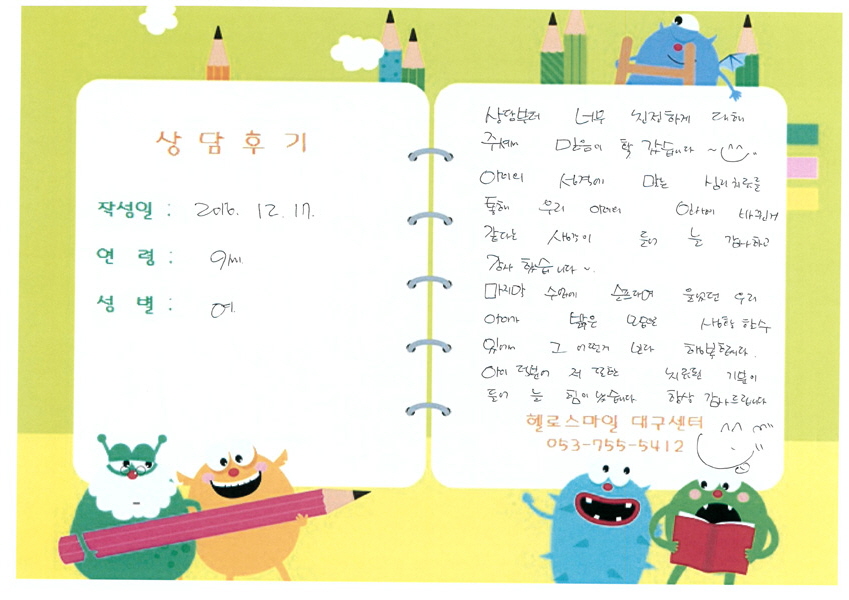 상담후기
작성일 : 2016. 12. 17.
연 령 : 9세.
성 별 : 여.
상담부터 너무 친절하게 대해
주셔서 믿음이 확 갔습니다 ~ ^^
아이의 성격에 맞는 심리치료를
통해 우리 아이의 바뀐거
같다는 생각이 들어 늘 감사하고
감사 했습니다~.
마지막 수업에 슬프다며 울었던 우리
아이가 밝은 모습으로 생활 할수
있어서 그 어떤것 보다 행복합니다.
아이 덕분에 저 또한 치료된 기분이
들어 늘 힘이 났습니다 항상 감사드립니다
헬로스마일 대구센터
053-755-5412